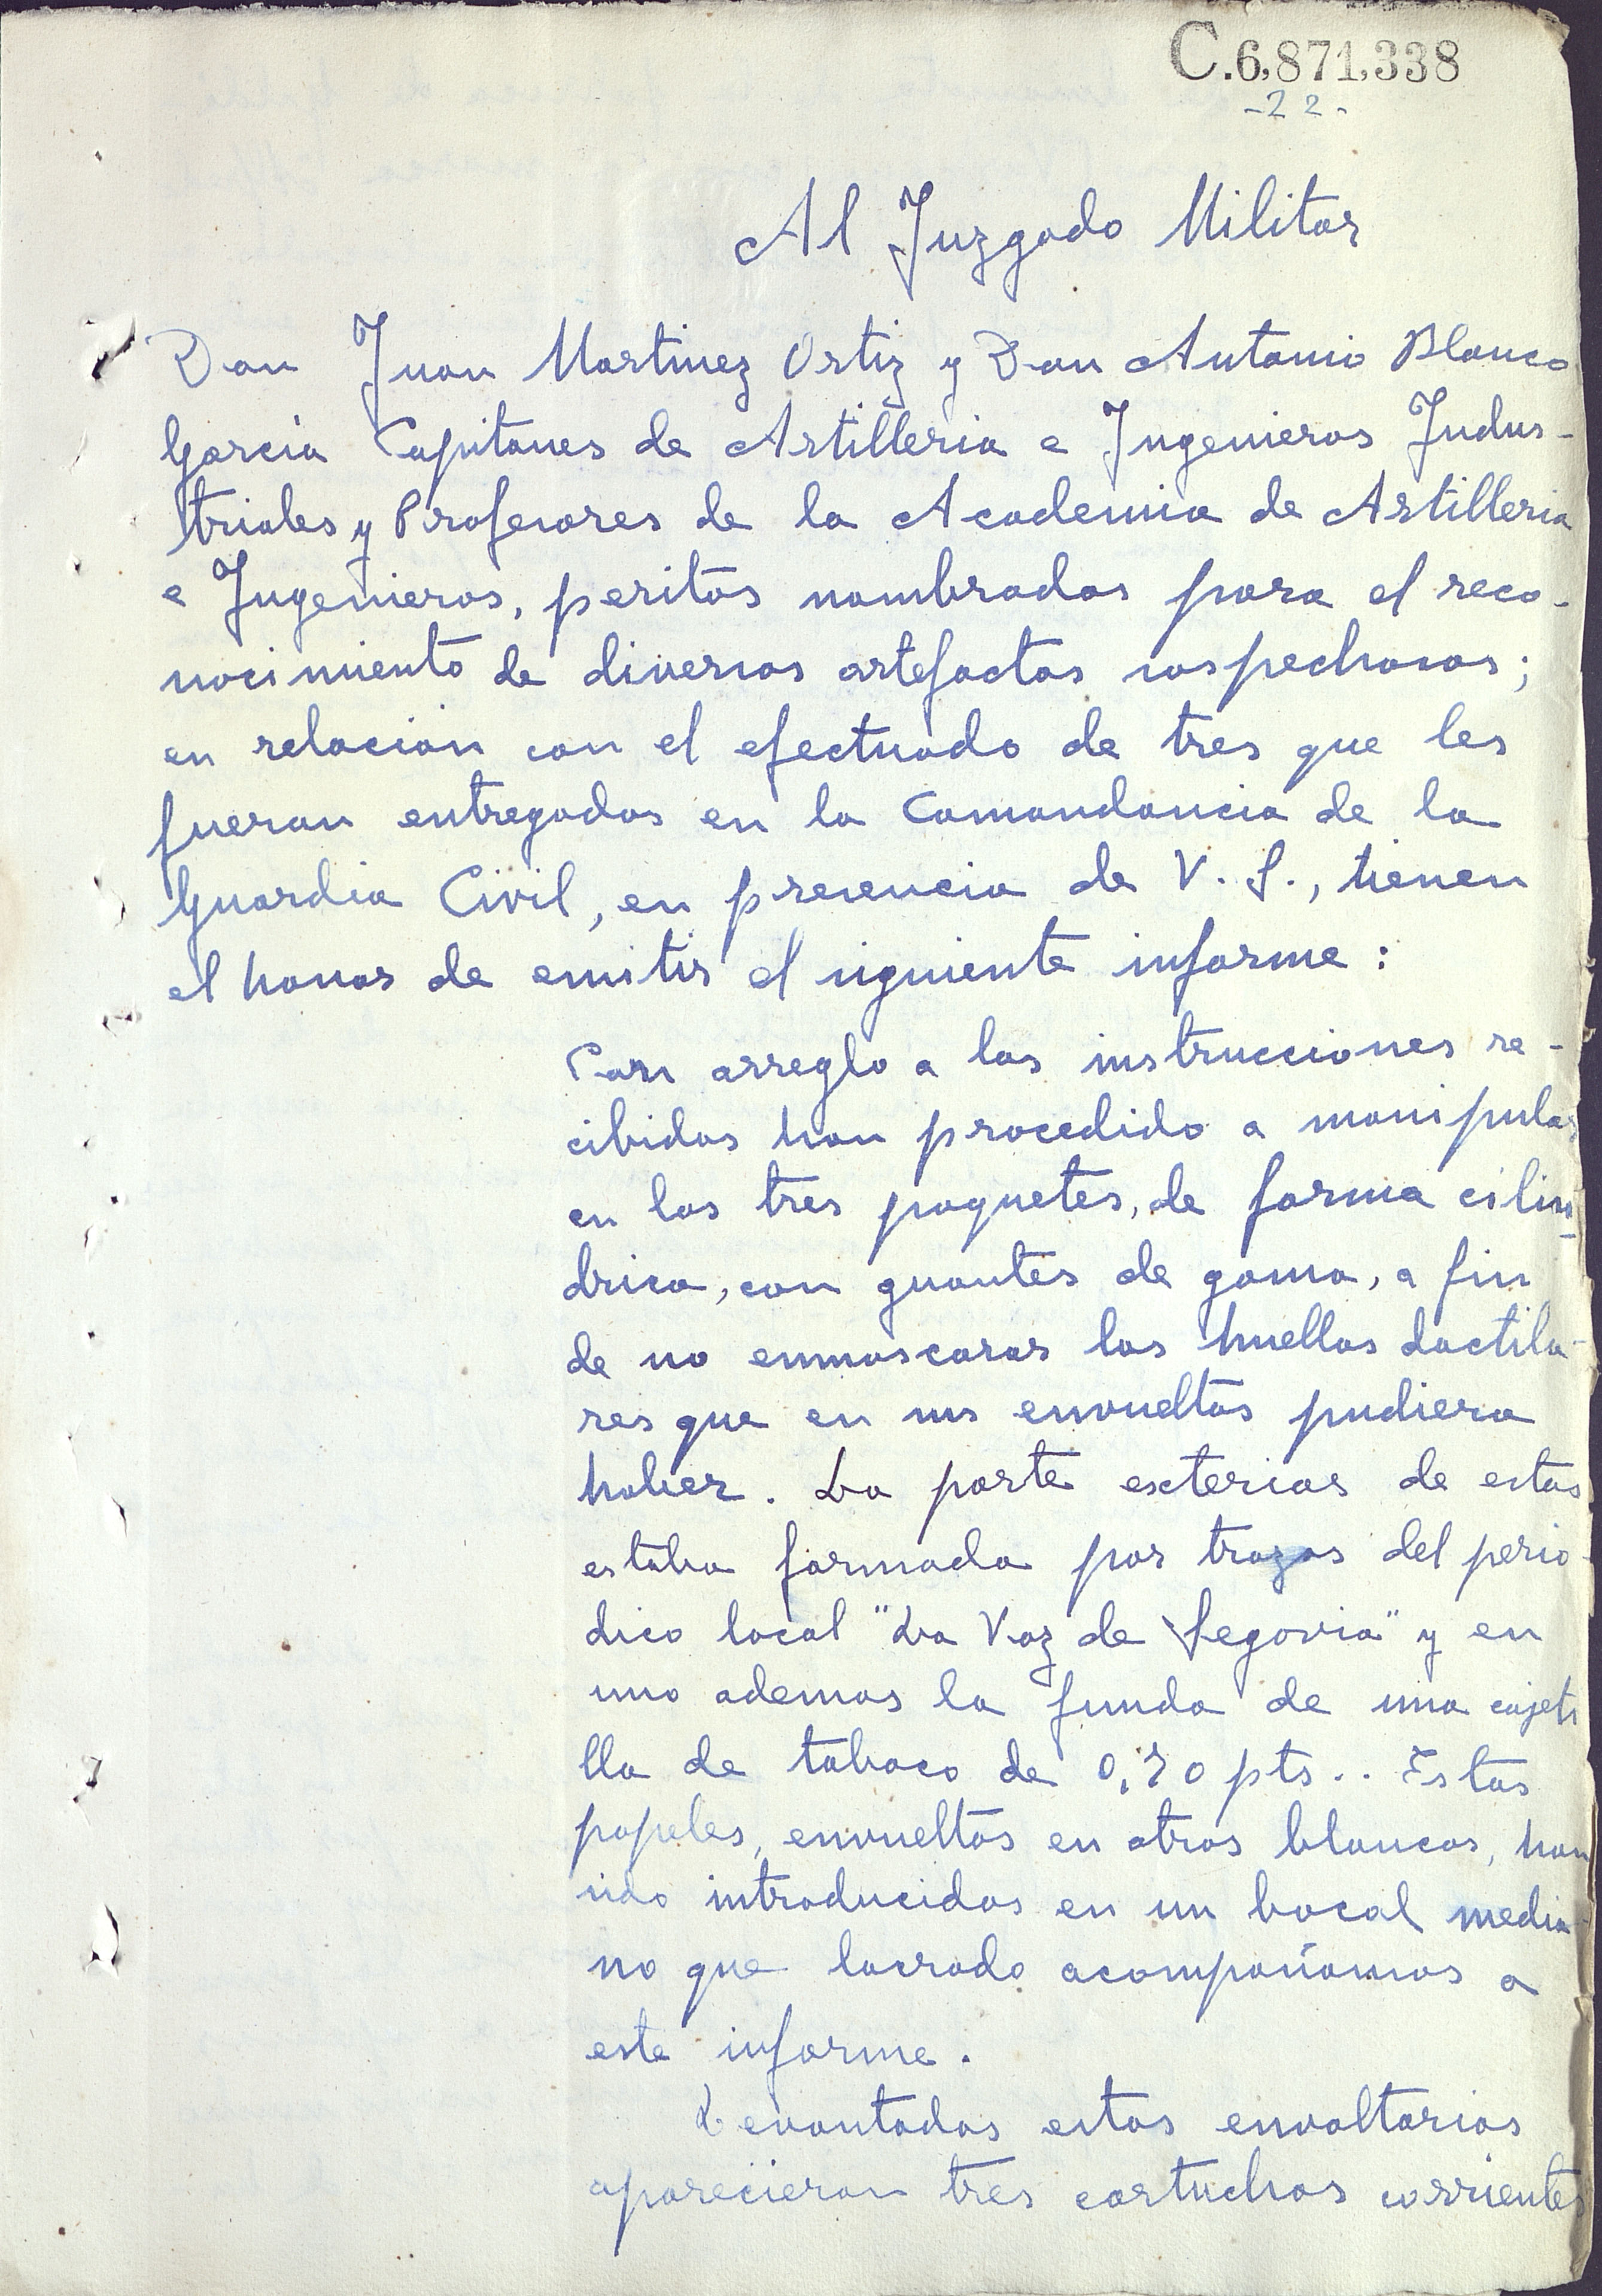 C.6,871,338
-22-
Al Juzgado Militar
Don Juan Martinez Ortiz y Don Antonio Blanco
García Capitanes de Artilleria e Ingenieros Indus-
triales y Profesores de la Academia de Artilleria
e Ingenieros, peritos nombrados para el reco-
nocimiento de diversos artefactos sospechosos;
en relacion con el efectuado de tres que les
fueron entregados en la Comandancia de la
Guardia Civil, en presencia de V. S., tienen
el honor de emitir el siguiente informe:
Con arreglo a las instrucciones re-
cibidas han procedido a manipular
en los tres paquetes, de forma cilin-
drica, con guantes de goma, a fin
de no enmascarar las huellas dactila-
res que en sus envueltas pudiera
haber. La parte exterior de estas
estaba formada por trozos del perio-
dico local "La Voz de Segovia" y en
uno ademas la funda de una cajeti
lla de tabaco de 0,70 pts.. Estos
papeles, envueltos en otros blancos, han
sido introducidos en un bocal media-
no que lacrado acompañamos a
este informe.
Levantados estos envoltorios
aparecieron tres cartuchos corrientes